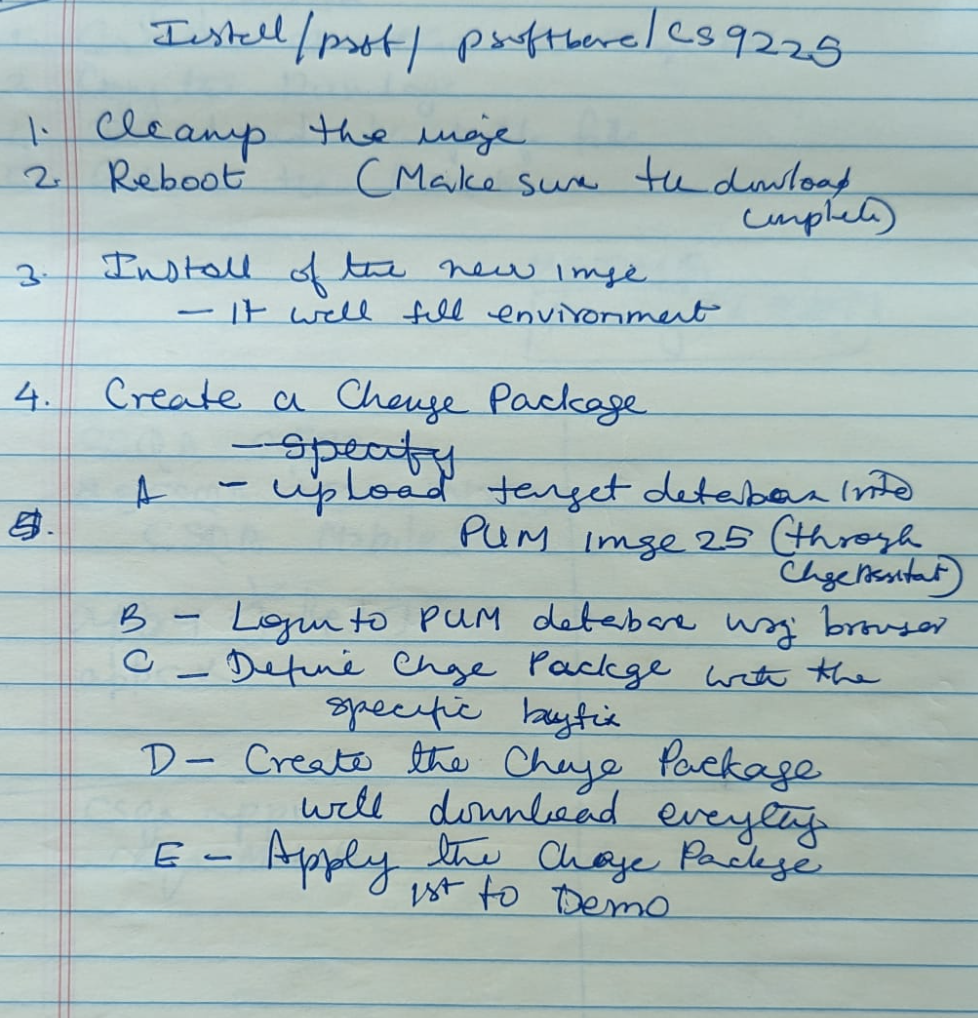 Install/psoft/ psoftbare/CS9225
1. Cleanup the image
2. Reboot (Make sure the download
complete)
3. Install of the new imge
- It will full environment
4. Create a Change Package
- Specify
A - upload target database into
5. PUM imge 25 (through
Chge Assitat)
B - Login to PUM database usg browser
C - Define Chge Package with the
specific bugfix
D - Create the Change Package
will download everytg
E - Apply the Change Package
1st to Demo